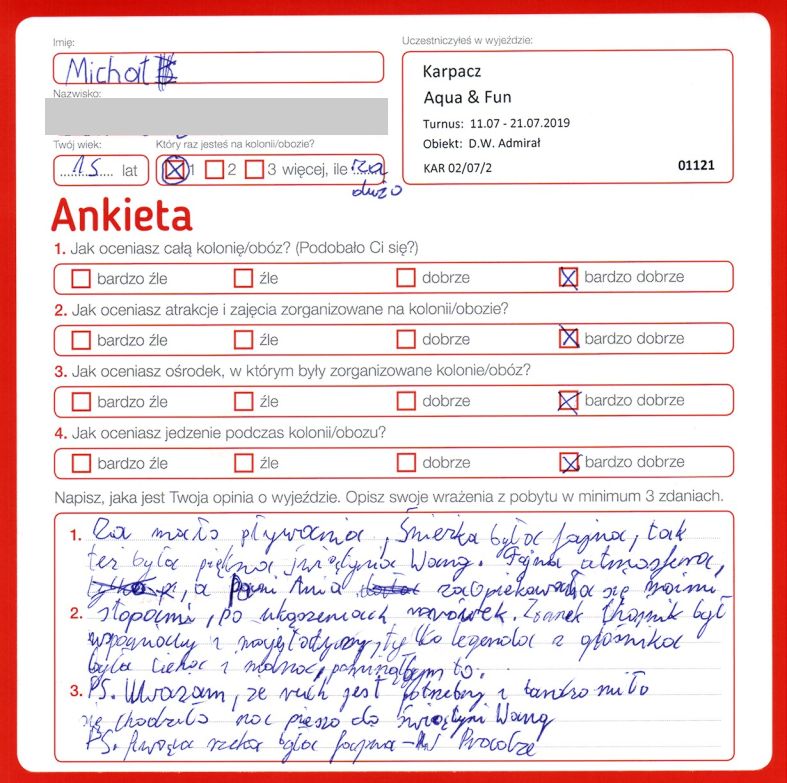 Imię:
Michał
Nazwisko:
Twój wiek:
15 lat
Który raz jesteś na kolonii/obozie?
1 2 3 więcej, ile za
dużo
Uczestniczyłeś w wyjeździe:
Karpacz
Aqua & Fun
Turnus: 11.07 - 21.07.2019
Obiekt: D.W. Admirał
KAR 02/07/2 01121
Ankieta
1. Jak oceniasz całą kolonię/obóz? (Podobało Ci się?)
bardzo źle źle dobrze bardzo dobrze
2. Jak oceniasz atrakcje i zajęcia zorganizowane na kolonii/obozie?
bardzo źle źle dobrze bardzo dobrze
3. Jak oceniasz ośrodek, w którym były zorganizowane kolonie/obóz?
bardzo źle źle dobrze bardzo dobrze
4. Jak oceniasz jedzenie podczas kolonii/obozu?
bardzo źle źle dobrze bardzo dobrze
Napisz, jaka jest Twoja opinia o wyjeździe. Opisz swoje wrażenia z pobytu w minimum 3 zdaniach.
1. Za mało pływania, Śnieżka była fajna, tak
też była piękna świątynia Wang. Fajna atmosfera,
, a Pani Ania zaopiekowała się moimi
2. stopami, po ukąszeniach mrówek. Zamek Chojnik był
wspaniały i tylko legenda z głośnika
była cicha i nudna, pominąłbym to.
3. PS. Uważam, że ruch jest potrzebny i bardzo miło
się chodziło na pieszo do świątyni Wang
PS. rzeka była fajna